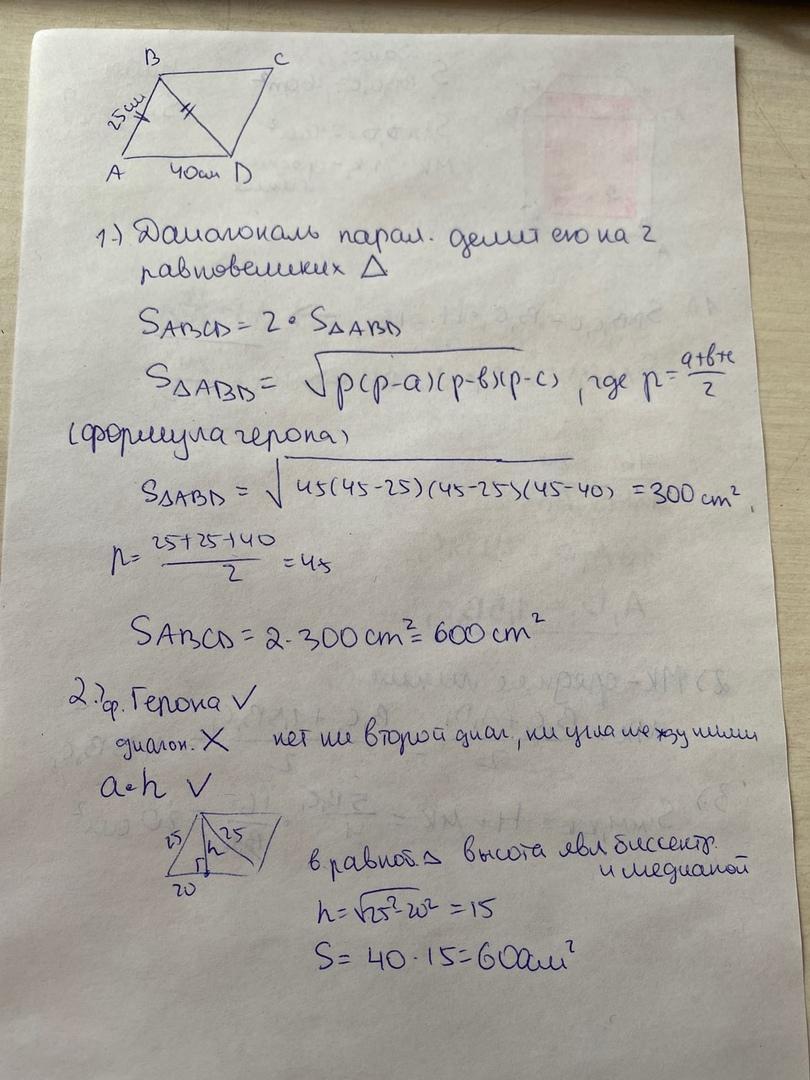 B C
25см
A 40см D
1.) Диагональ парал. делит его на 2
равновеликих Δ
SABCD = 2 • SΔABD
SΔABD = √p(p-a)(p-b)(p-c) , где p = a+b+c/2
(формула герона)
SΔABD = √45(45-25)(45-25)(45-40) = 300 cm²,
p = 25+25+40/2 = 45
SABCD = 2·300 cm² = 600 cm²
2.? ф. Герона ✓
диагон. X нет ни второй диаг, ни угла между ними
a•h ✓
25 h 25
20
в равноб. Δ высота явл биссектр.
и медианой
h = √25²-20² = 15
S = 40·15 = 600см²